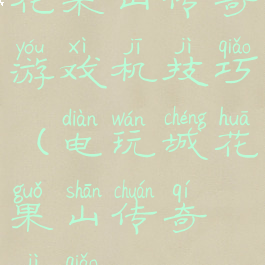 花果山传奇
yóu xì jī jì qiǎo
游戏机技巧
diàn wán chéng huā
（电玩城花
guǒ shān chuán qí
果山传奇
jì qiǎo